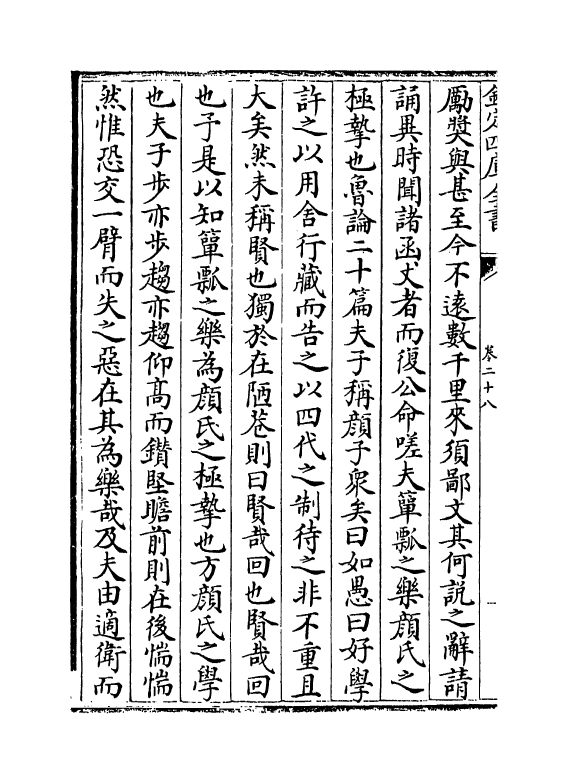 欽定四庫全書
卷二十八
勵奬與甚至今不遠數千里來須鄙文其何説之辭請
誦異時聞諸函丈者而復公命嗟夫簞瓢之樂顔氏之
極摯也魯論二十篇夫子稱顔子衆矣曰如愚曰好學
許之以用舍行藏而告之以四代之制待之非不重且
大矣然未稱賢也獨於在陋巷則曰賢哉回也賢哉回
也予是以知簞瓢之樂為顔氏之極摯也方顔氏之學
也夫子步亦步趨亦趨仰髙而鑚堅瞻前則在後惴惴
然惟恐交一臂而失之惡在其為樂哉及夫由適衛而